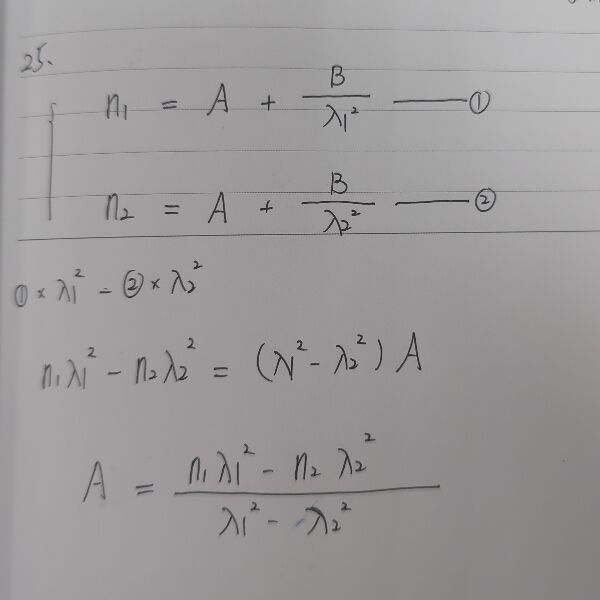 25.
n₁ = A + B/λ₁² —— ①
n₂ = A + B/λ₂² —— ②
① × λ₁² - ② × λ₂²
n₁λ₁² - n₂λ₂² = (λ₁² - λ₂²) A
A = (n₁λ₁² - n₂λ₂²)/(λ₁² - λ₂²)